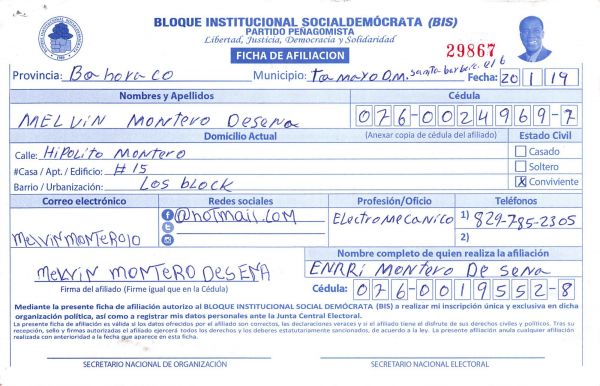 BLOQUE INSTITUCIONAL SOCIALDEMÓCRATA (BIS)
PARTIDO PEÑAGOMISTA
Libertad, Justicia, Democracia y Solidaridad
FICHA DE AFILIACION
29867
Provincia: Bahoraco Municipio: tamayo D.M. santa barbara el 6 Fecha: 20 1 19
Nombres y Apellidos Cédula
MELVIN MONTERO DESENA 076-0024969-7
Domicilio Actual (Anexar copia de cédula del afiliado) Estado Civil
Calle: HIPOLITO MONTERO Casado
#Casa / Apt. / Edificio: #15 Soltero
Barrio / Urbanización: LOS BLOCK X Conviviente
Correo electrónico Redes sociales Profesión/Oficio Teléfonos
@HOTMAIL.COM ELECTROMECANICO 1) 829-785-2305
MELVINMONTERO10 2)
Nombre completo de quien realiza la afiliación
MELVIN MONTERO DESENA ENRRI MONTERO DE SENA
Firma del afiliado (Firme igual que en la Cédula) Cédula: 076-0019552-8
Mediante la presente ficha de afiliación autorizo al BLOQUE INSTITUCIONAL SOCIAL DEMÓCRATA (BIS) a realizar mi inscripción única y exclusiva en dicha
organización política, así como a registrar mis datos personales ante la Junta Central Electoral.
La presente ficha de afiliación es válida si los datos ofrecidos por el afiliado son correctos, las declaraciones veraces y si el afiliado tiene el disfrute de sus derechos civiles y políticos. Tras su
recepción, sello y firmas autorizadas el afiliado ejercerá todos los derechos y los deberes estatutariamente sancionados, de acuerdo a la ley. La presente afiliación anula cualquier afiliación
realizada con anterioridad a la fecha que aparece en esta ficha.
SECRETARIO NACIONAL DE ORGANIZACIÓN SECRETARIO NACIONAL ELECTORAL